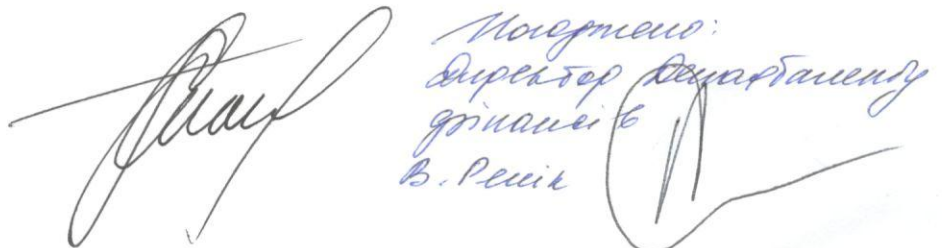 Погоджено:
Директор Департаменту
фінансів
В. Репік